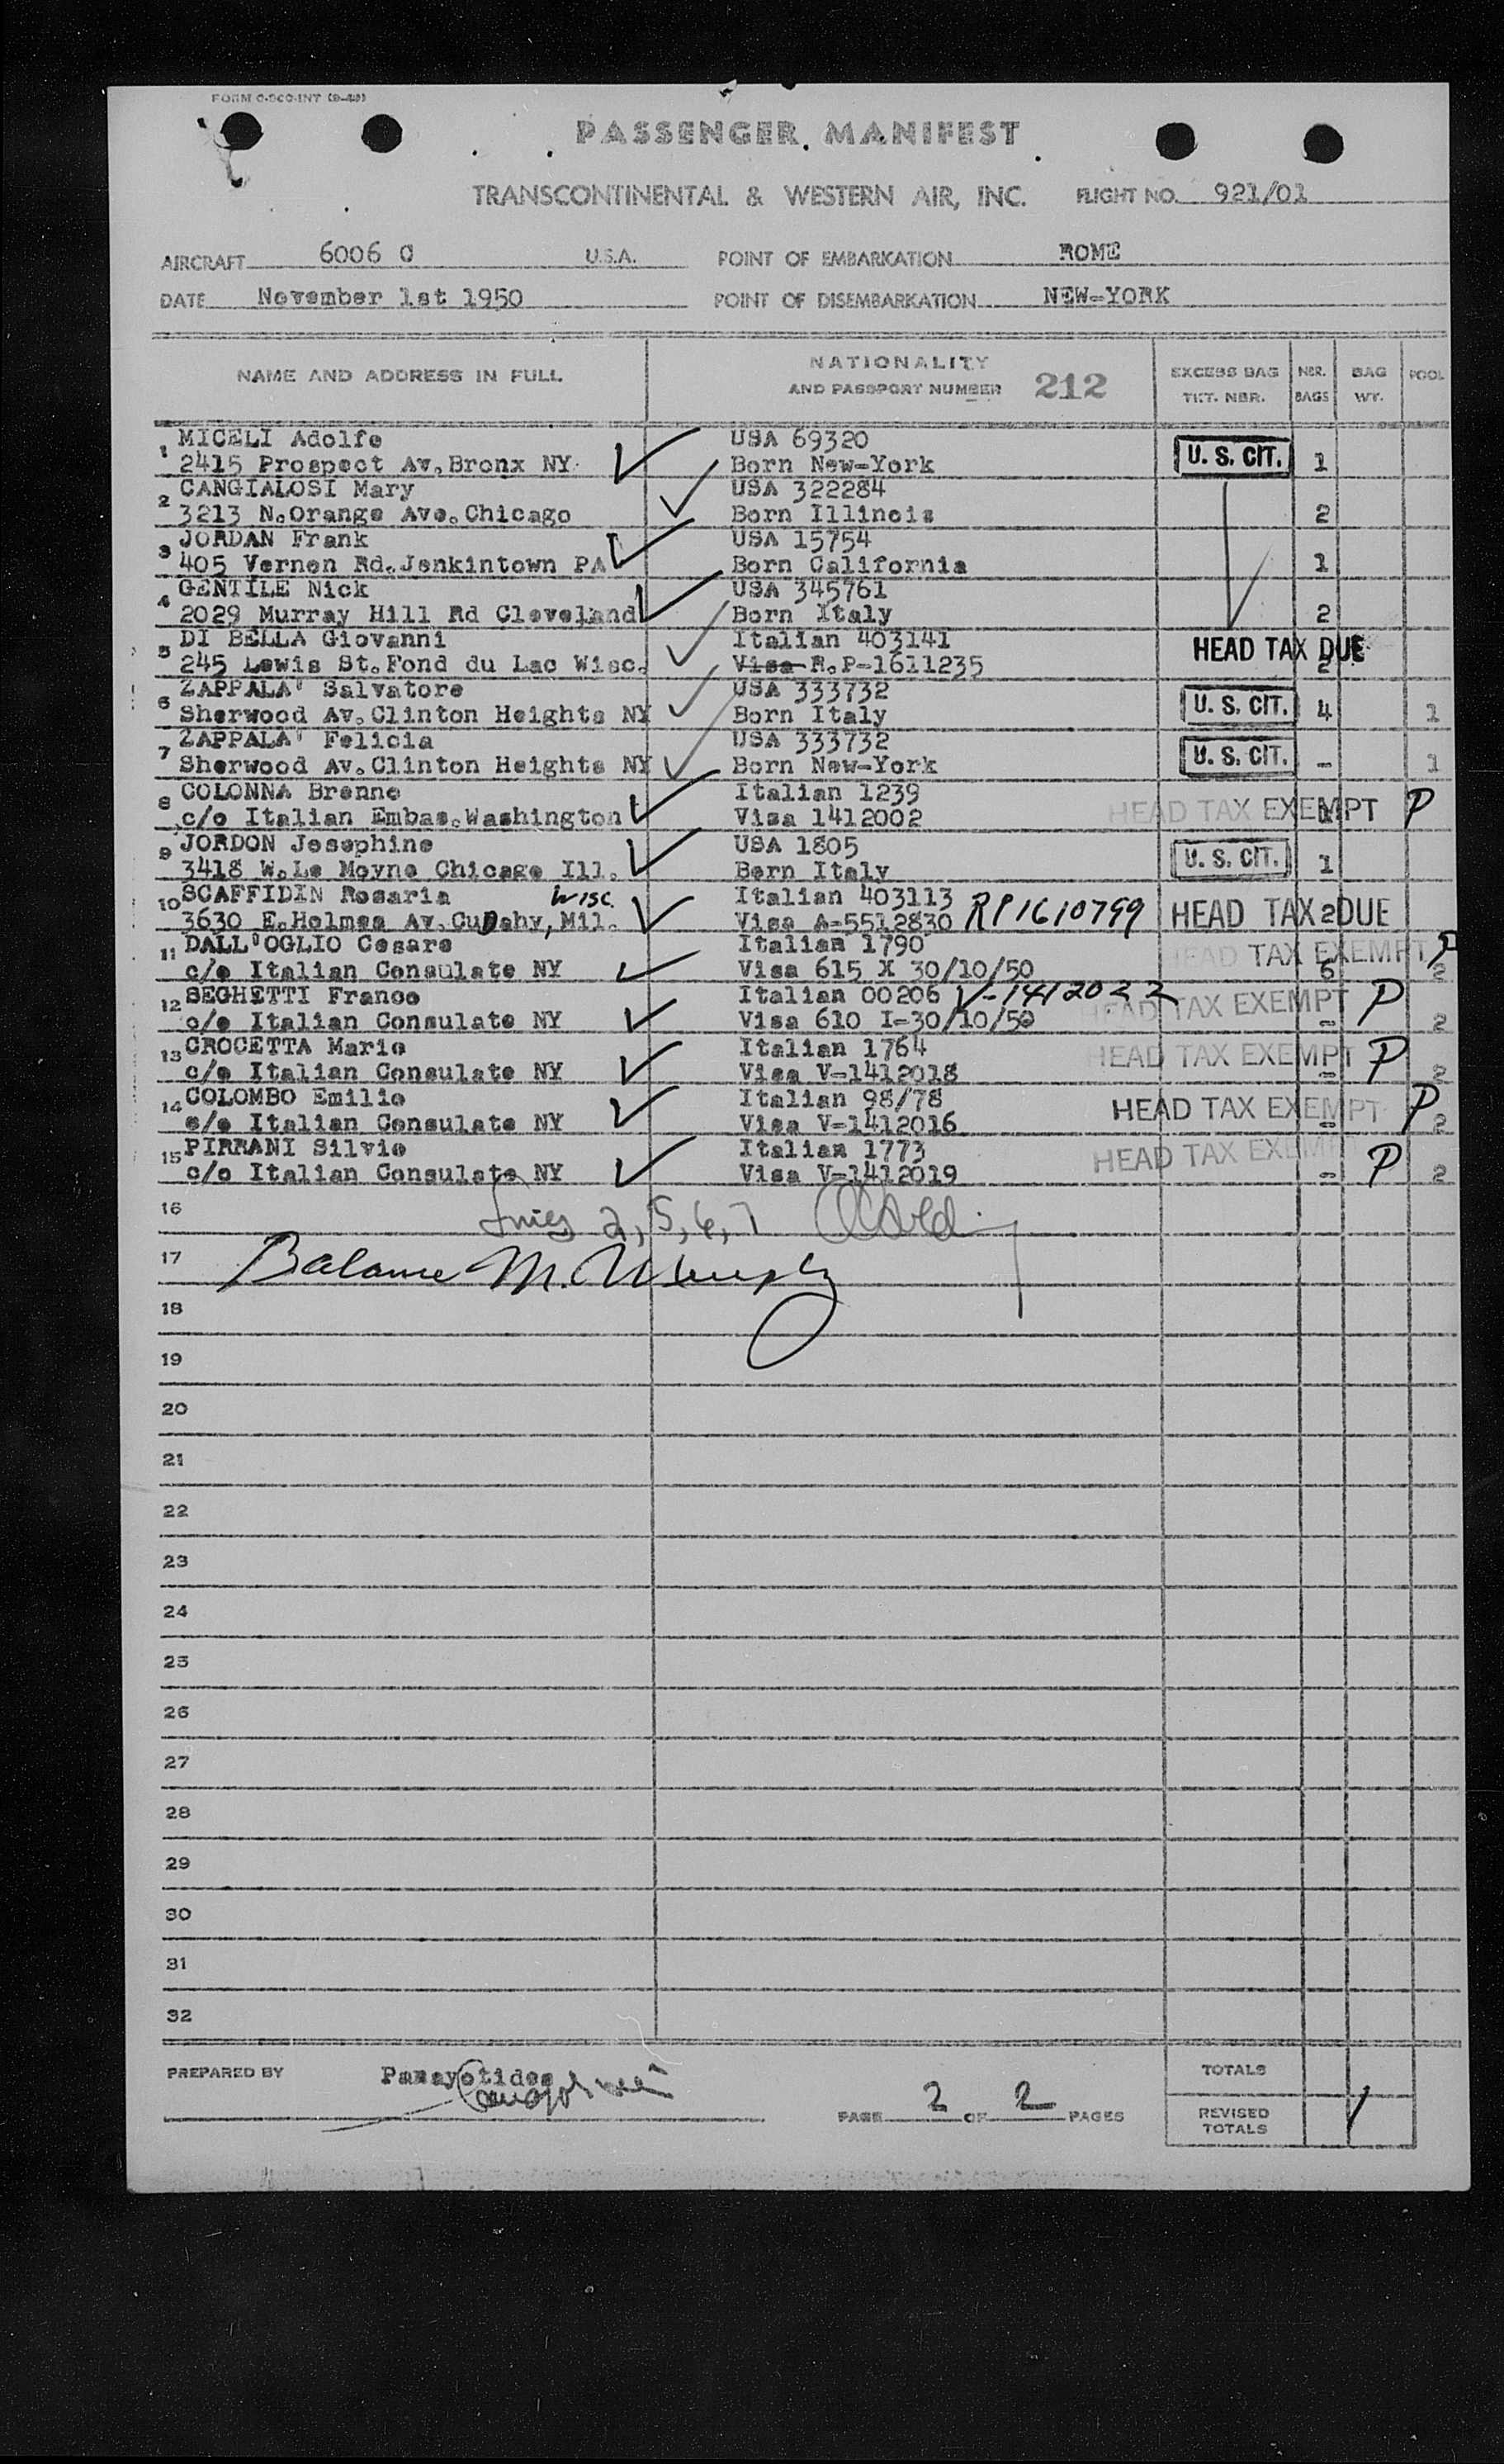 FORM O-900-INT (9-49)
PASSENGER MANIFEST
TRANSCONTINENTAL & WESTERN AIR, INC. FLIGHT NO. 921/01
AIRCRAFT 6006 C U.S.A. POINT OF EMBARKATION ROME
DATE November 1st 1950 POINT OF DISEMBARKATION NEW-YORK
NAME AND ADDRESS IN FULL NATIONALITY AND PASSPORT NUMBER 212 EXCESS BAG TKT. NBR. NBR. BAGS BAG WT. POOL
1 MICELI Adolfe USA 69320
2415 Prospect Av. Bronx NY Born New-York U. S. CIT. 1
2 CANGIALOSI Mary USA 322284
3213 N.Orange Ave.Chicago Born Illinois 2
3 JORDAN Frank USA 15754
405 Vernon Rd.Jenkintown PA Born California 1
4 GENTILE Nick USA 345761
2029 Murray Hill Rd Cleveland Born Italy 2
5 DI BELLA Giovanni Italian 403141 HEAD TAX DUE
245 Lewis St.Fond du Lac Wisc. Visa R.P-1611235 2
6 ZAPPALA' Salvatore USA 333732
Sherwood Av.Clinton Heights NY Born Italy U. S. CIT. 4 1
7 ZAPPALA' Felicia USA 333732
Sherwood Av.Clinton Heights NY Born New-York U. S. CIT. - 1
8 COLONNA Brenno Italian 1239
c/o Italian Embas.Washington Visa 1412002 HEAD TAX EXEMPT P
9 JORDON Josephine USA 1805
3418 W.Le Moyne Chicago Ill. Born Italy U. S. CIT. 1
10 SCAFFIDIN Rosaria Wisc. Italian 403113
3630 E.Holmes Av.CuDahy, Mil. Visa A-5512830 RP1610799 HEAD TAX DUE 2
11 DALL'OGLIO Cesare Italian 1790 HEAD TAX EXEMPT P
c/o Italian Consulate NY Visa 615 X 30/10/50 6 2
12 SEGHETTI Franco Italian 00206 V-1412022
c/o Italian Consulate NY Visa 610 I-30/10/50 HEAD TAX EXEMPT P - 2
13 CROCETTA Mario Italian 1764
c/o Italian Consulate NY Visa V-1412018 HEAD TAX EXEMPT P - 2
14 COLOMBO Emilio Italian 98/78
c/o Italian Consulate NY Visa V-1412016 HEAD TAX EXEMPT P - 2
15 PIRRANI Silvio Italian 1773
c/o Italian Consulate NY Visa V-1412019 HEAD TAX EXEMPT P - 2
16 Lines 2, 5, 6, 7
17 Balance M.
18
19
20
21
22
23
24
25
26
27
28
29
30
31
32
PREPARED BY Panayotides TOTALS
PAGE 2 OF 2 PAGES REVISED TOTALS